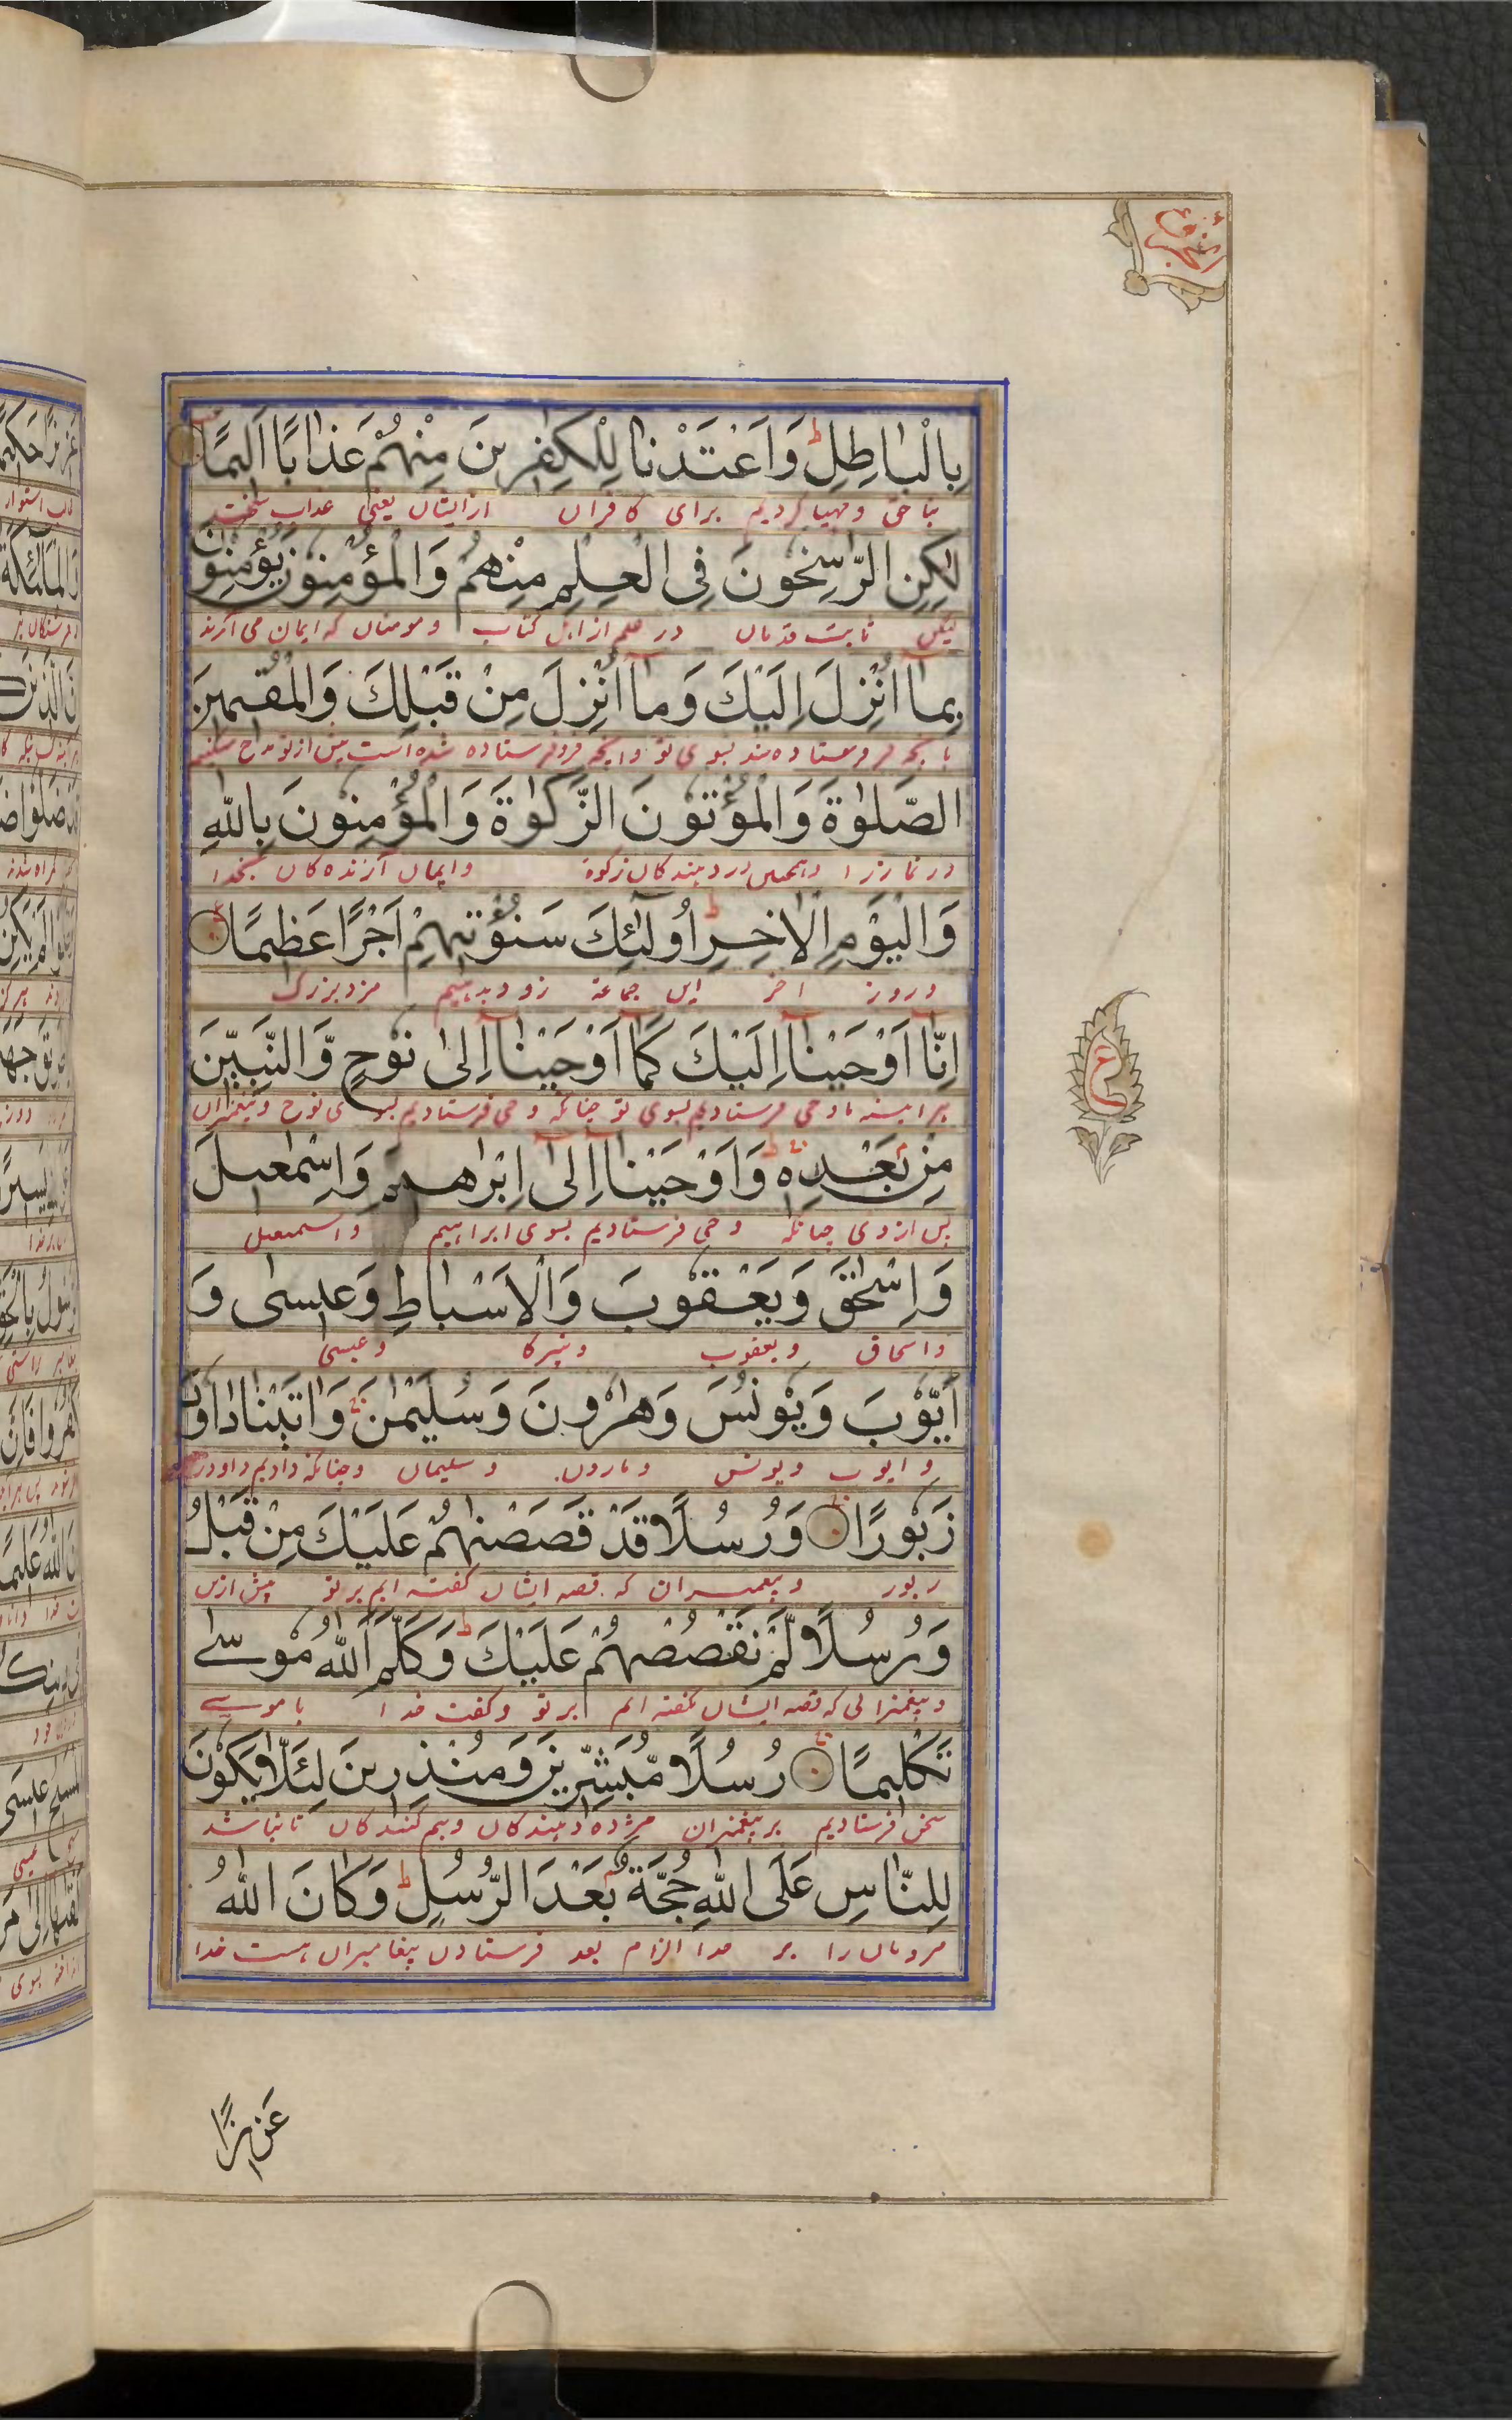 بِالْبَاطِلِ ط وَاَعْتَدْنَا لِلْكٰفِرِينَ مِنْهُمْ عَذَابًا اَلِيمًا
بناحق ومهیا کردیم برای کافران ازایشان یعنی عذاب سخت
لٰكِنِ الرّٰسِخُونَ فِى الْعِلْمِ مِنْهُمْ وَالْمُؤْمِنُونَ يُؤْمِنُونَ
لیکن ثابت قدمان در علم از اهل کتاب ومومنان که ایمان می آرند
بِمَآ اُنْزِلَ اِلَيْكَ وَمَآ اُنْزِلَ مِنْ قَبْلِكَ وَالْمُقِيمِينَ
بسوی تو وانچه فروفرستاده شده است پیش ازتو
الصَّلٰوةَ وَالْمُؤْتُونَ الزَّكٰوةَ وَالْمُؤْمِنُونَ بِاللّٰهِ
زکوة وایمان آرنده کان بخدا
وَالْيَوْمِ الْاٰخِرِ ط اُولٰٓئِكَ سَنُؤْتِيهِمْ اَجْرًا عَظِيمًا
وروز آخر این جماعة زود بدهیم مزد بزرک
اِنَّآ اَوْحَيْنَآ اِلَيْكَ كَمَآ اَوْحَيْنَآ اِلٰى نُوحٍ وَّالنَّبِيّٖنَ
هرآینه ما وحی فرستادیم بسوی تو چنانکه وحی فرستادیم بسوی نوح وپیغمبران
مِنْ بَعْدِهٖ وَاَوْحَيْنَآ اِلٰٓى اِبْرٰهِيمَ وَاِسْمٰعِيلَ
پس ازوی چنانکه وحی فرستادیم بسوی ابراهیم واسمعیل
وَاِسْحٰقَ وَيَعْقُوبَ وَالْاَسْبَاطِ وَعِيسٰى وَ
واسحاق ویعقوب ونبیرکا وعیسی
اَيُّوبَ وَيُونُسَ وَهٰرُونَ وَسُلَيْمٰنَ وَاٰتَيْنَا دَاوٗدَ
وایوب ویونس وهارون وسلیمان وچنانکه دادیم داودرا
زَبُورًا وَرُسُلًا قَدْ قَصَصْنٰهُمْ عَلَيْكَ مِنْ قَبْلُ
زبور وپیغمبران که قصه ایشان کفته ایم برتو پیش ازین
وَرُسُلًا لَّمْ نَقْصُصْهُمْ عَلَيْكَ ط وَكَلَّمَ اللّٰهُ مُوسٰى
وپیغمبرانی که قصه ایشان نکفته ایم برتو وکفت خدا با موسی
تَكْلِيمًا رُسُلًا مُّبَشِّرِينَ وَمُنْذِرِينَ لِئَلَّا يَكُونَ
سخن فرستادیم پیغمبران مژده دهندکان وبیم کنندکان تا نباشد
لِلنَّاسِ عَلَى اللّٰهِ حُجَّةٌ بَعْدَ الرُّسُلِ ط وَكَانَ اللّٰهُ
مردمان را بر خدا الزام بعد فرستادن پیغامبران هست خدا
ع
عَزِيزًا